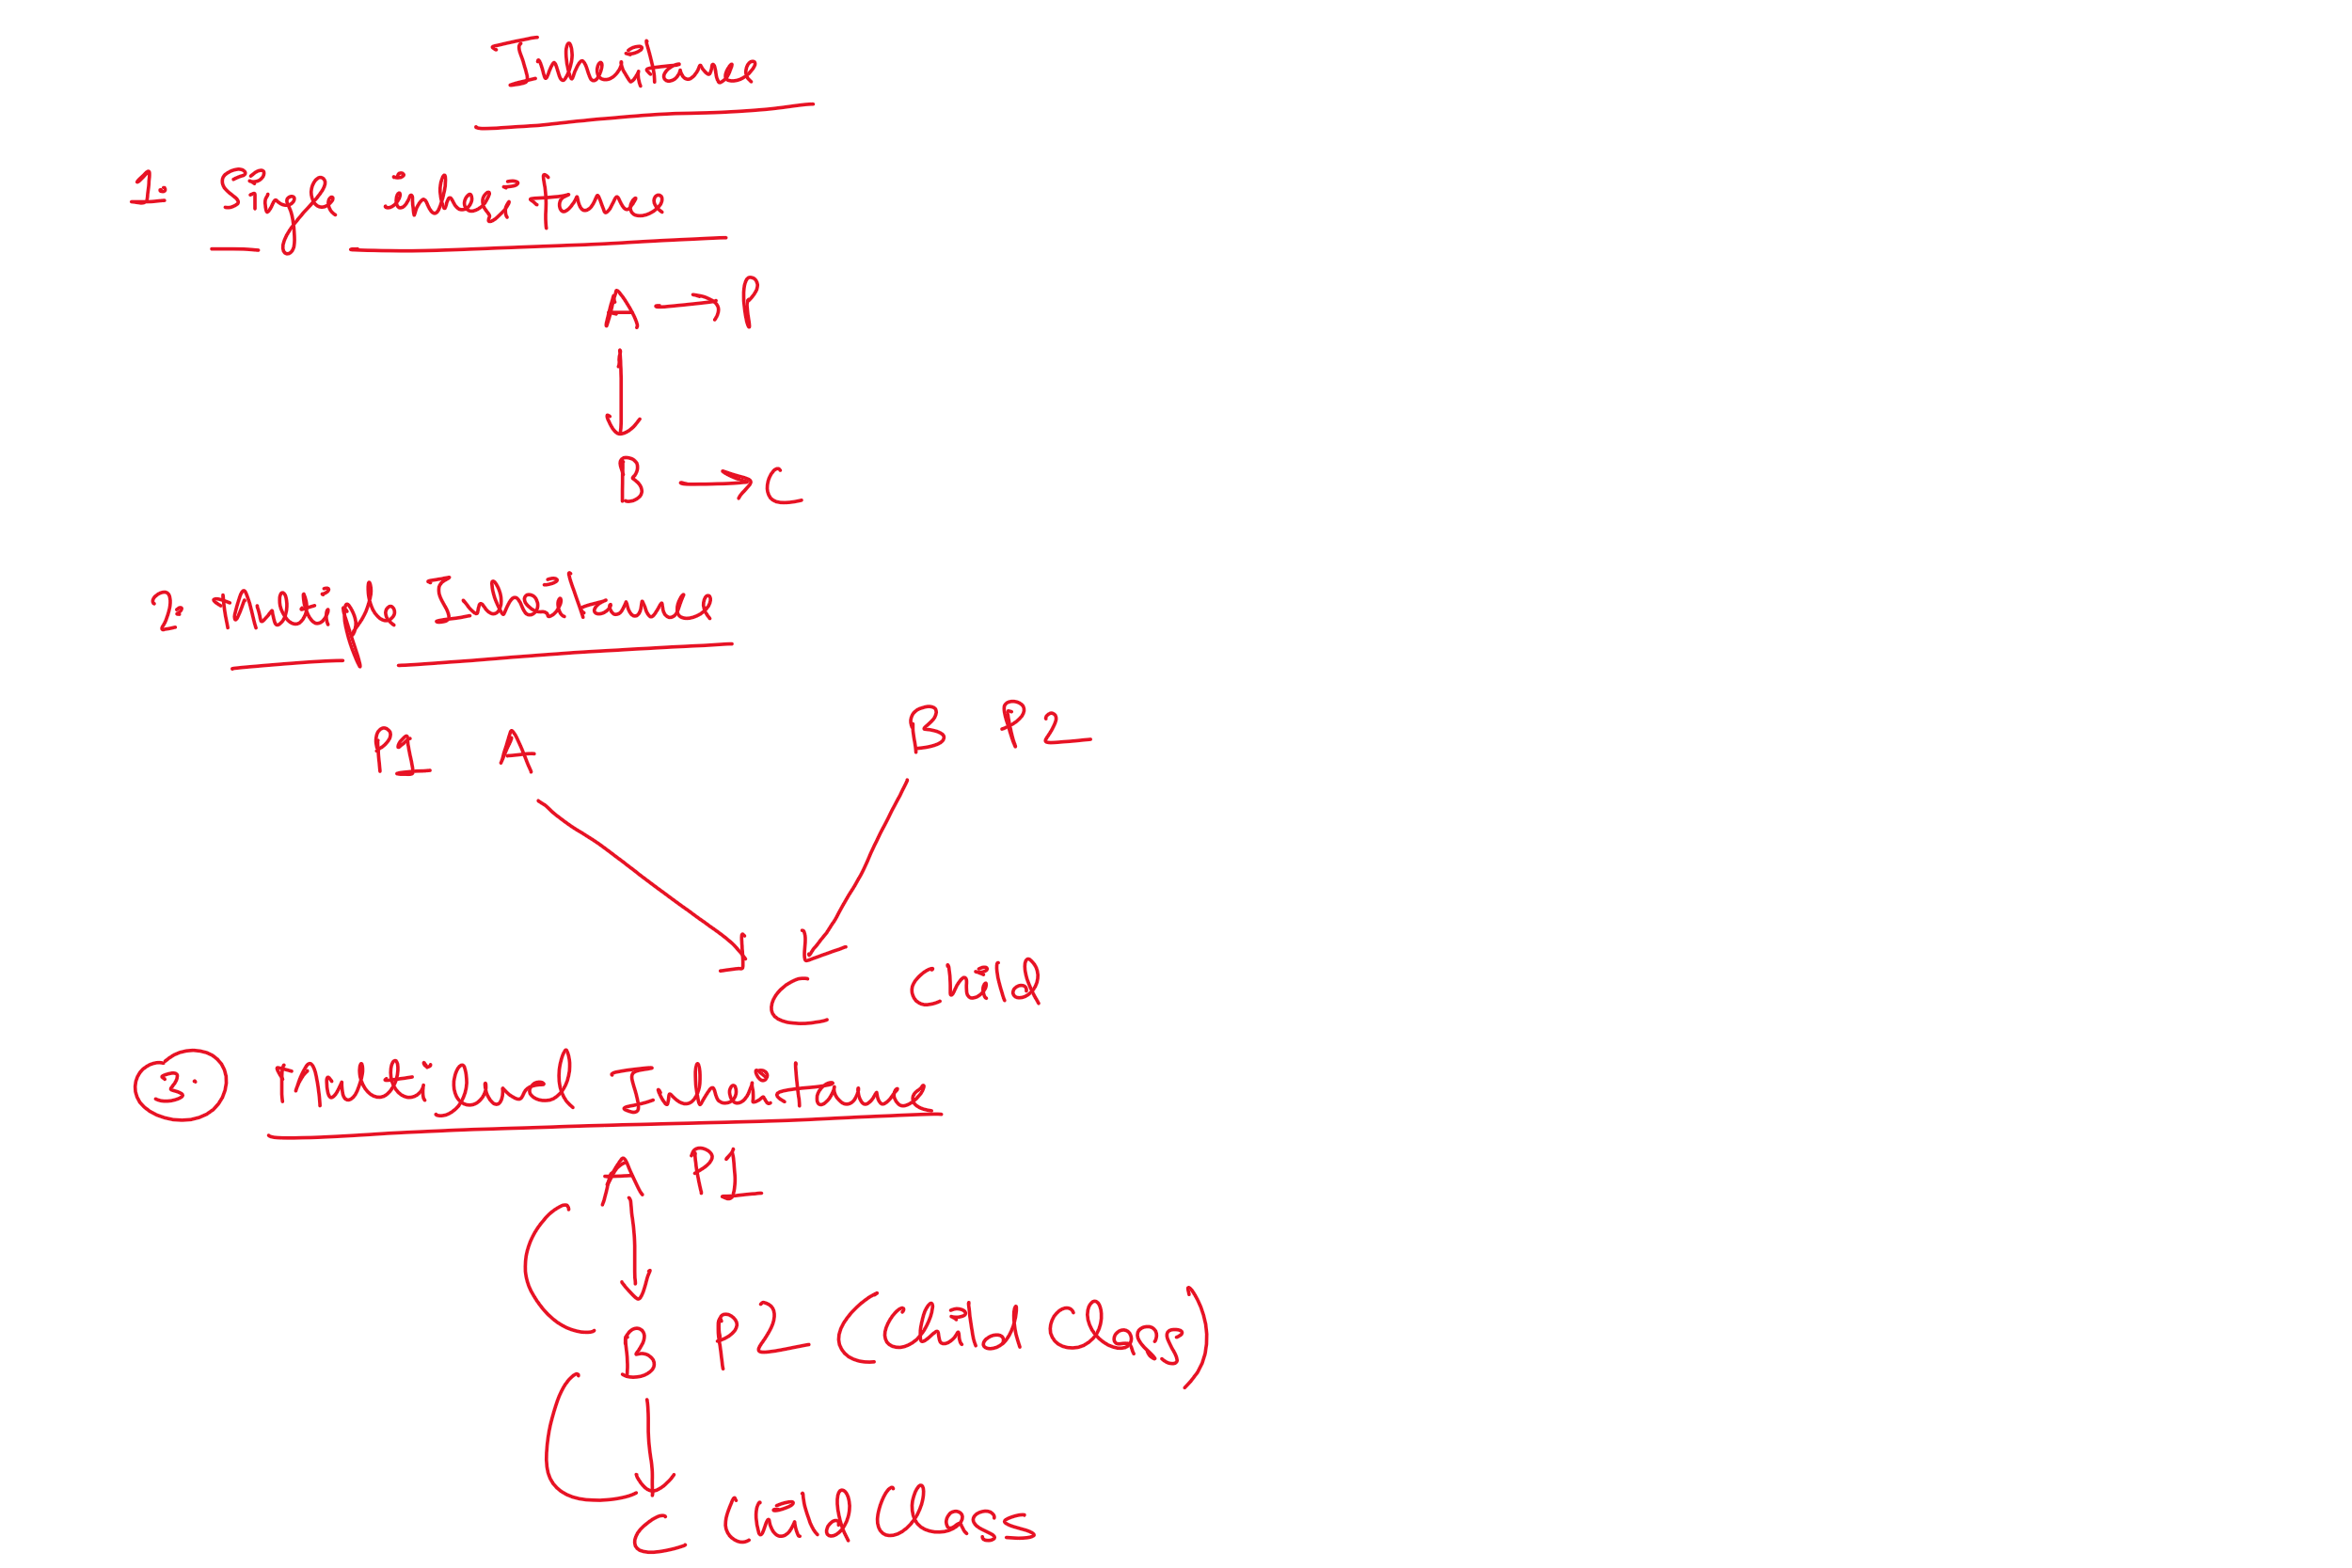 Inheritance
1. Single inheritance
A → P
B → C
2. Multiple Inheritance
P1 A B P2
C Child
3. Multilevel Inheritance
A P1
B P2 (Child Class)
C Child Class